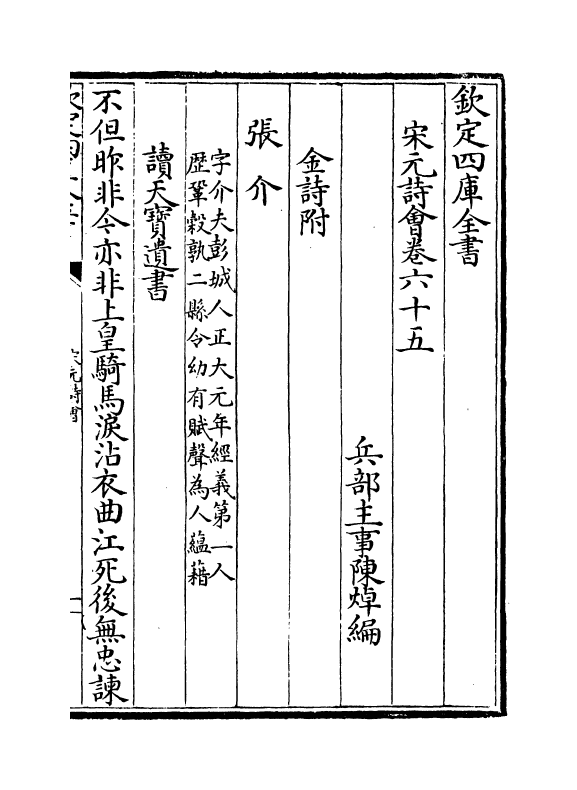 欽定四庫全書
宋元詩會卷六十五
兵部主事陳焯編
金詩附
張介
字介夫彭城人正大元年經義第一人
歴鞏縠孰二縣令幼有賦聲為人蘊藉
讀天寶遺書
不但昨非今亦非上皇騎馬淚沾衣曲江死後無忠諫
宋元詩會